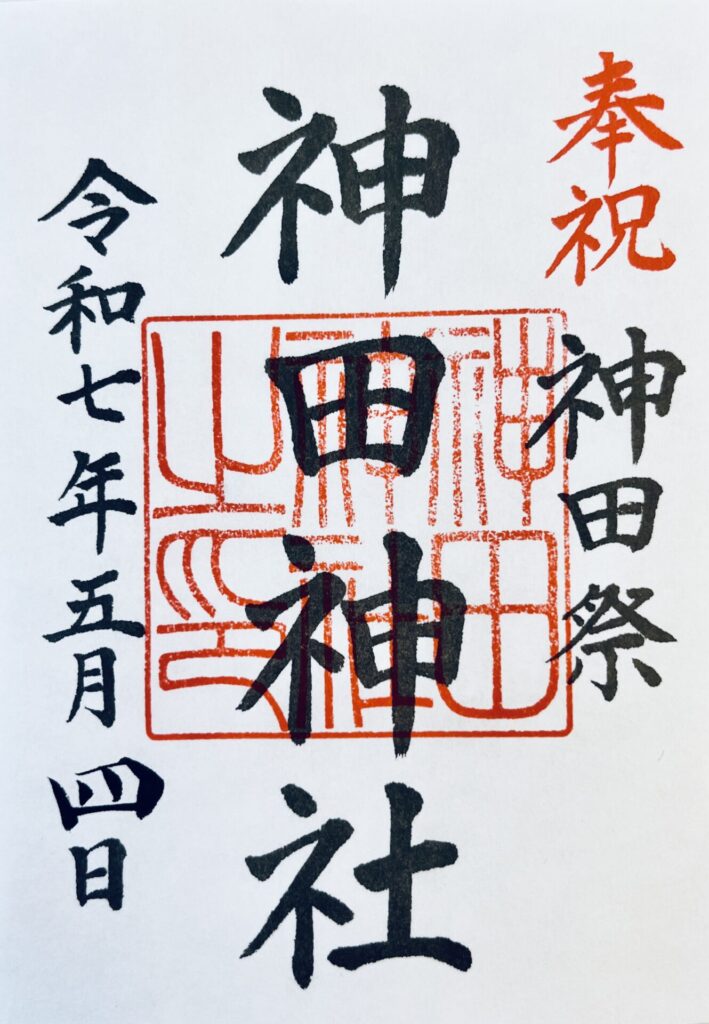 奉祝
神田祭
神田神社
神田
神社
之印
令和七年五月四日